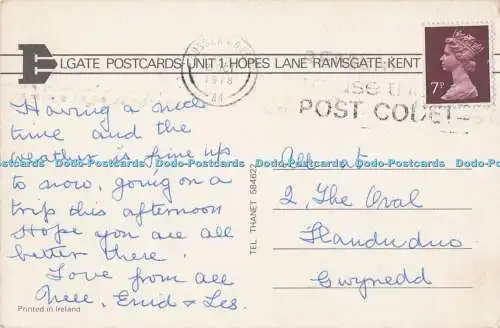 ELGATE POSTCARDS UNIT 1 HOPES LANE RAMSGATE KENT
1978
POST CODE
7P
Having a nice
time and the
weather is fine up
to now, going on a
trip this afternoon
Hope you are all
better there.
Love from all
Nell, Enid & Les.
Printed in Ireland
TEL. THANET 584622
All at
2, The Oval
Llandudno
Gwynedd
Dodo-Postcards Dodo-Postcards Dodo-Postcards Dodo-Postcards Dodo-Postcards